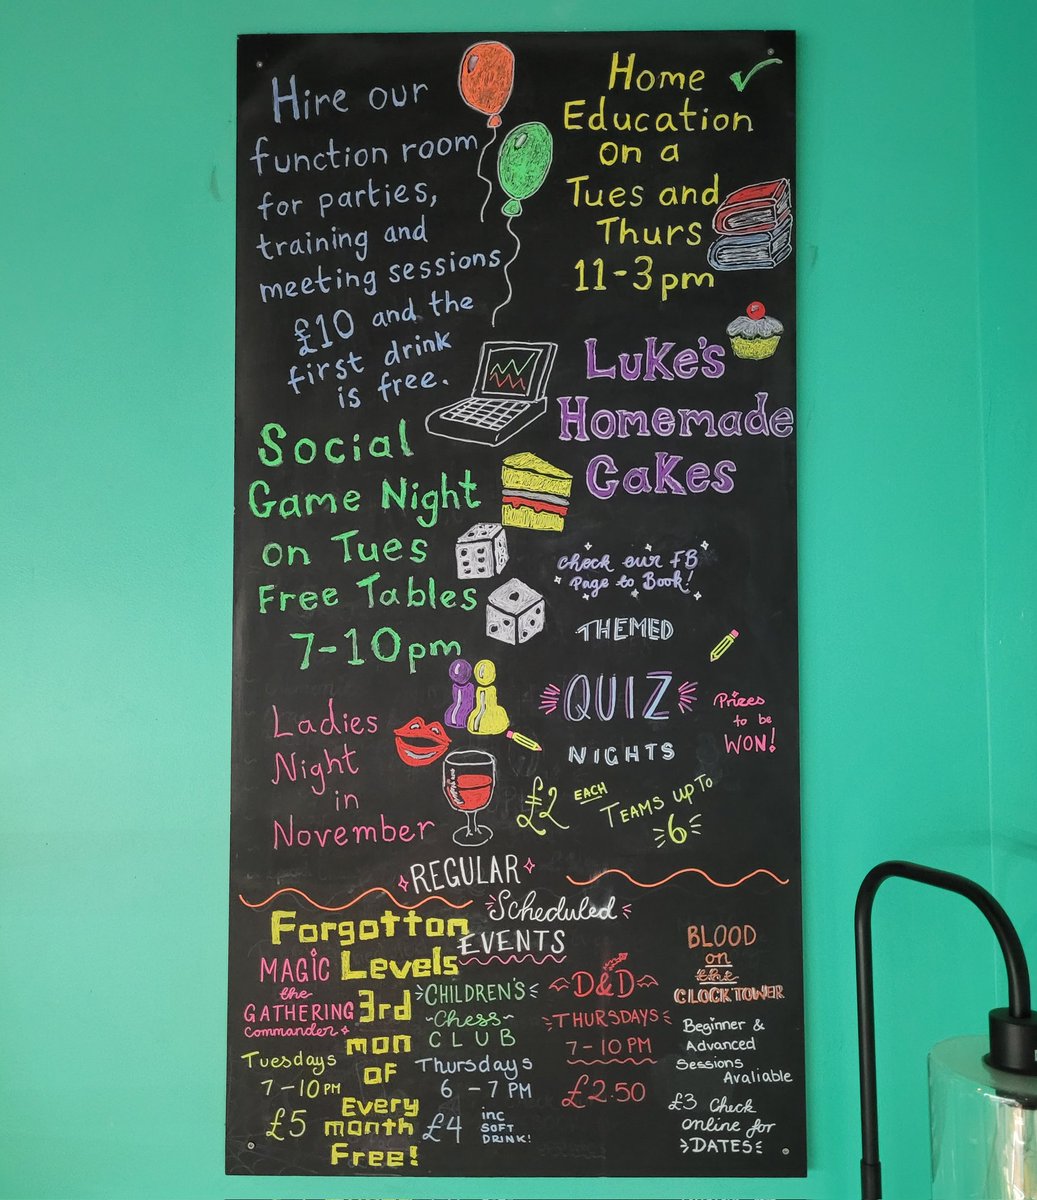 Hire our
function room
for parties,
training and
meeting sessions
£10 and the
first drink
is free.
Home
Education
on a
Tues and
Thurs
11-3pm
Luke's
Homemade
Cakes
Social
Game Night
on Tues
Free Tables
7-10pm
Check our FB
Page to Book!
THEMED
QUIZ
NIGHTS
Prizes
to be
WON!
£2 EACH
TEAMS UP TO
6
Ladies
Night
in
November
REGULAR
Scheduled
EVENTS
Forgotton
Levels
3rd
mon
OF
Every
month
Free!
MAGIC
the
GATHERING
Commander
Tuesdays
7-10PM
£5
CHILDREN'S
~Chess~
CLUB
Thursdays
6-7PM
£4 inc
SOFT
DRINK!
D&D
THURSDAYS
7-10PM
£2.50
BLOOD
on
the
CLOCKTOWER
Beginner &
Advanced
Sessions
Avaliable
£3 Check
online for
DATES